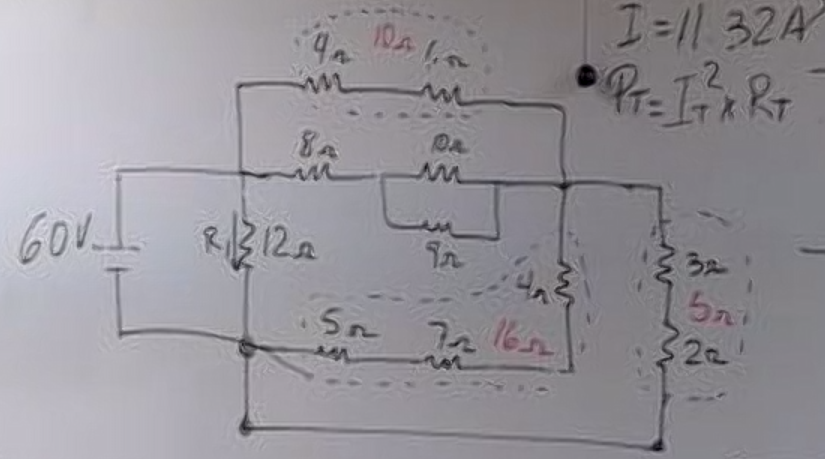 I = 11.32A
P_T = I_T² × R_T
10Ω
9Ω 1Ω
8Ω 10Ω
9Ω
60V
R₁ 12Ω
4Ω
3Ω
5Ω
2Ω
5Ω 7Ω 16Ω